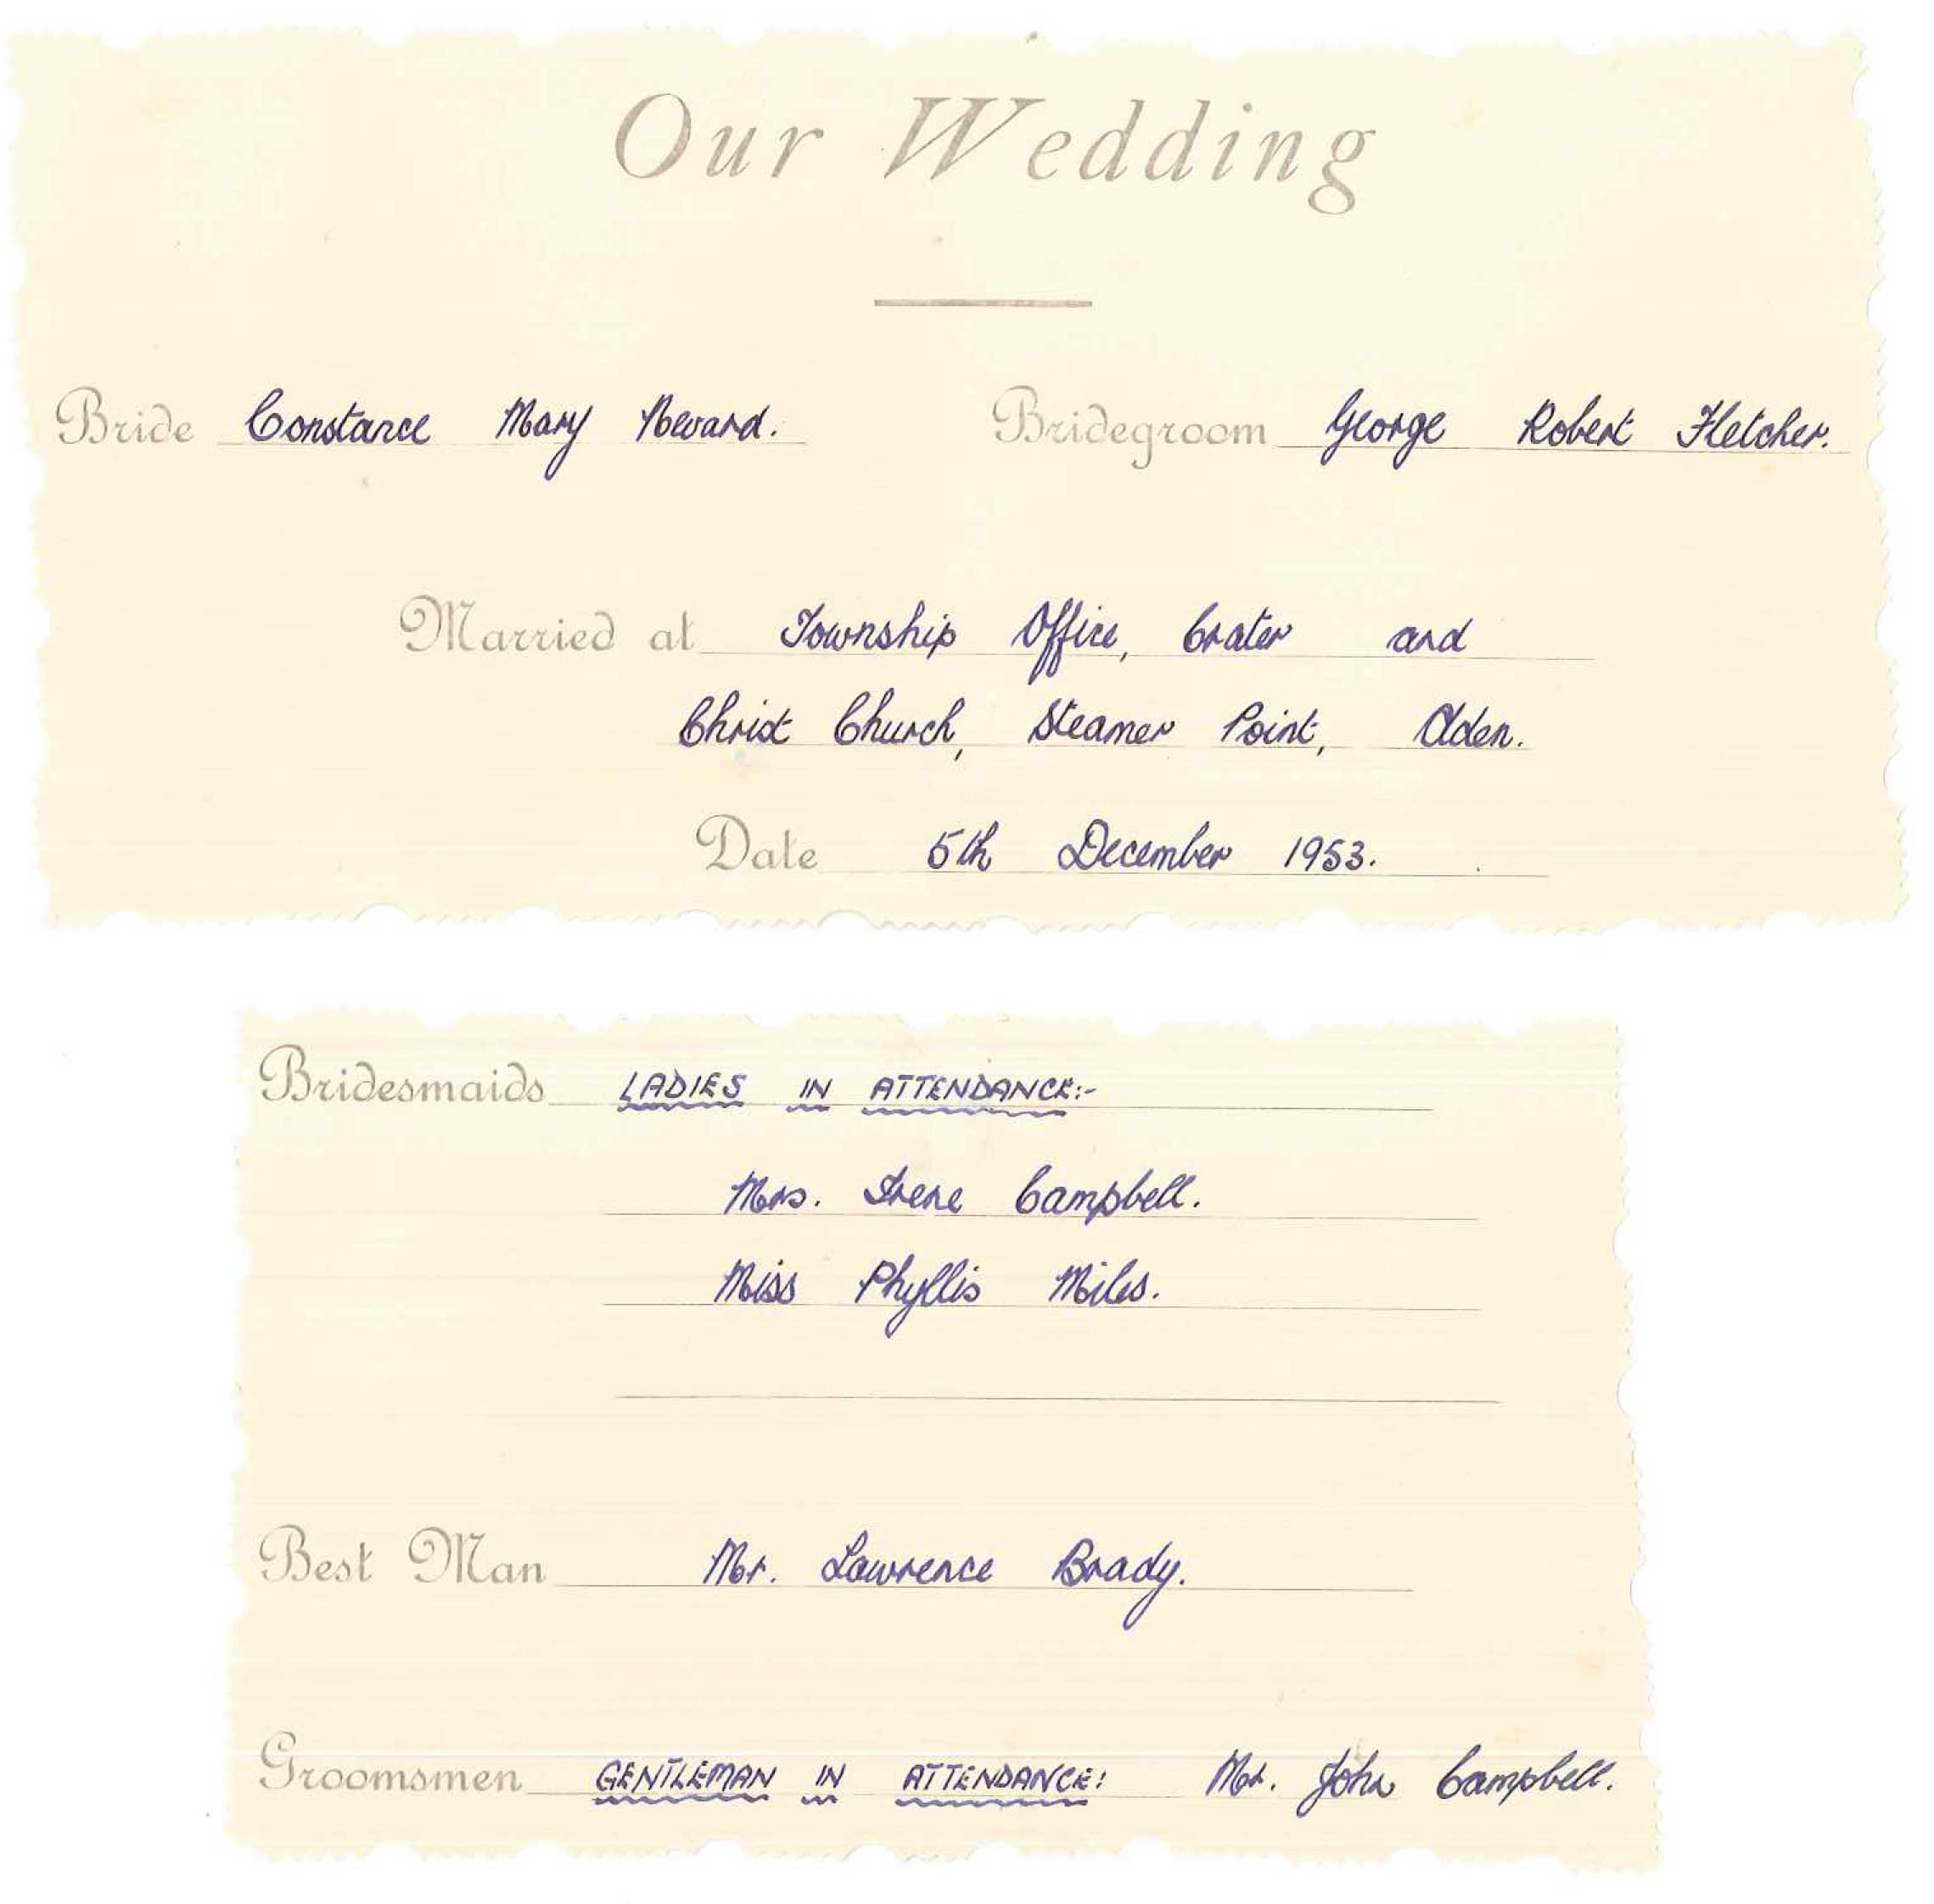 Our Wedding
Bride Constance Mary Nevard. Bridegroom George Robert Fletcher.
Married at Township Office, Crater and
Christ Church, Steamer Point, Aden.
Date 5th December 1953.
Bridesmaids LADIES IN ATTENDANCE:-
Mrs. Irene Campbell.
Miss Phyllis Miles.
Best Man Mr. Lawrence Brady.
Groomsmen GENTLEMAN IN ATTENDANCE: Mr. John Campbell.